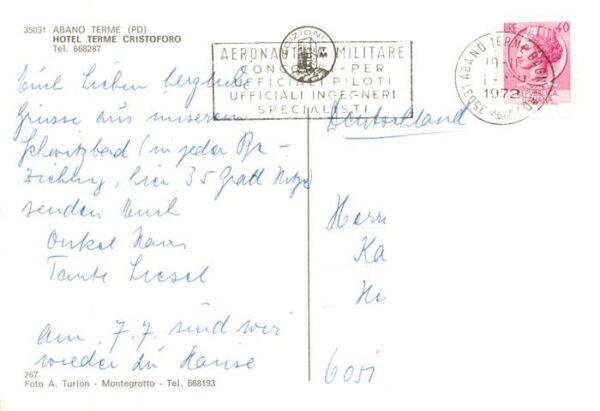 35031 ABANO TERME (PD)
HOTEL TERME CRISTOFORO
Tel. 668287
EDIZIONI
AERONAUTICA MILITARE
CONCORSI PER
UFFICIALI PILOTI
UFFICIALI INGEGNERI
SPECIALISTI
35031 ABANO TERME
1972
LIRE 40
ITALIA
Deutschland
Euch Lieben herzliche
Grüsse aus unserem
Schwitzbad (in jeder Be-
ziehung, hier 35 Gratt Hitze)
senden Euch
Onkel Hans
Tante Liesel
am 7.7. sind wir
wieder zu Hause
Herrn
Ka
He
6051
267
Foto A. Turlon - Montegrotto - Tel. 668193